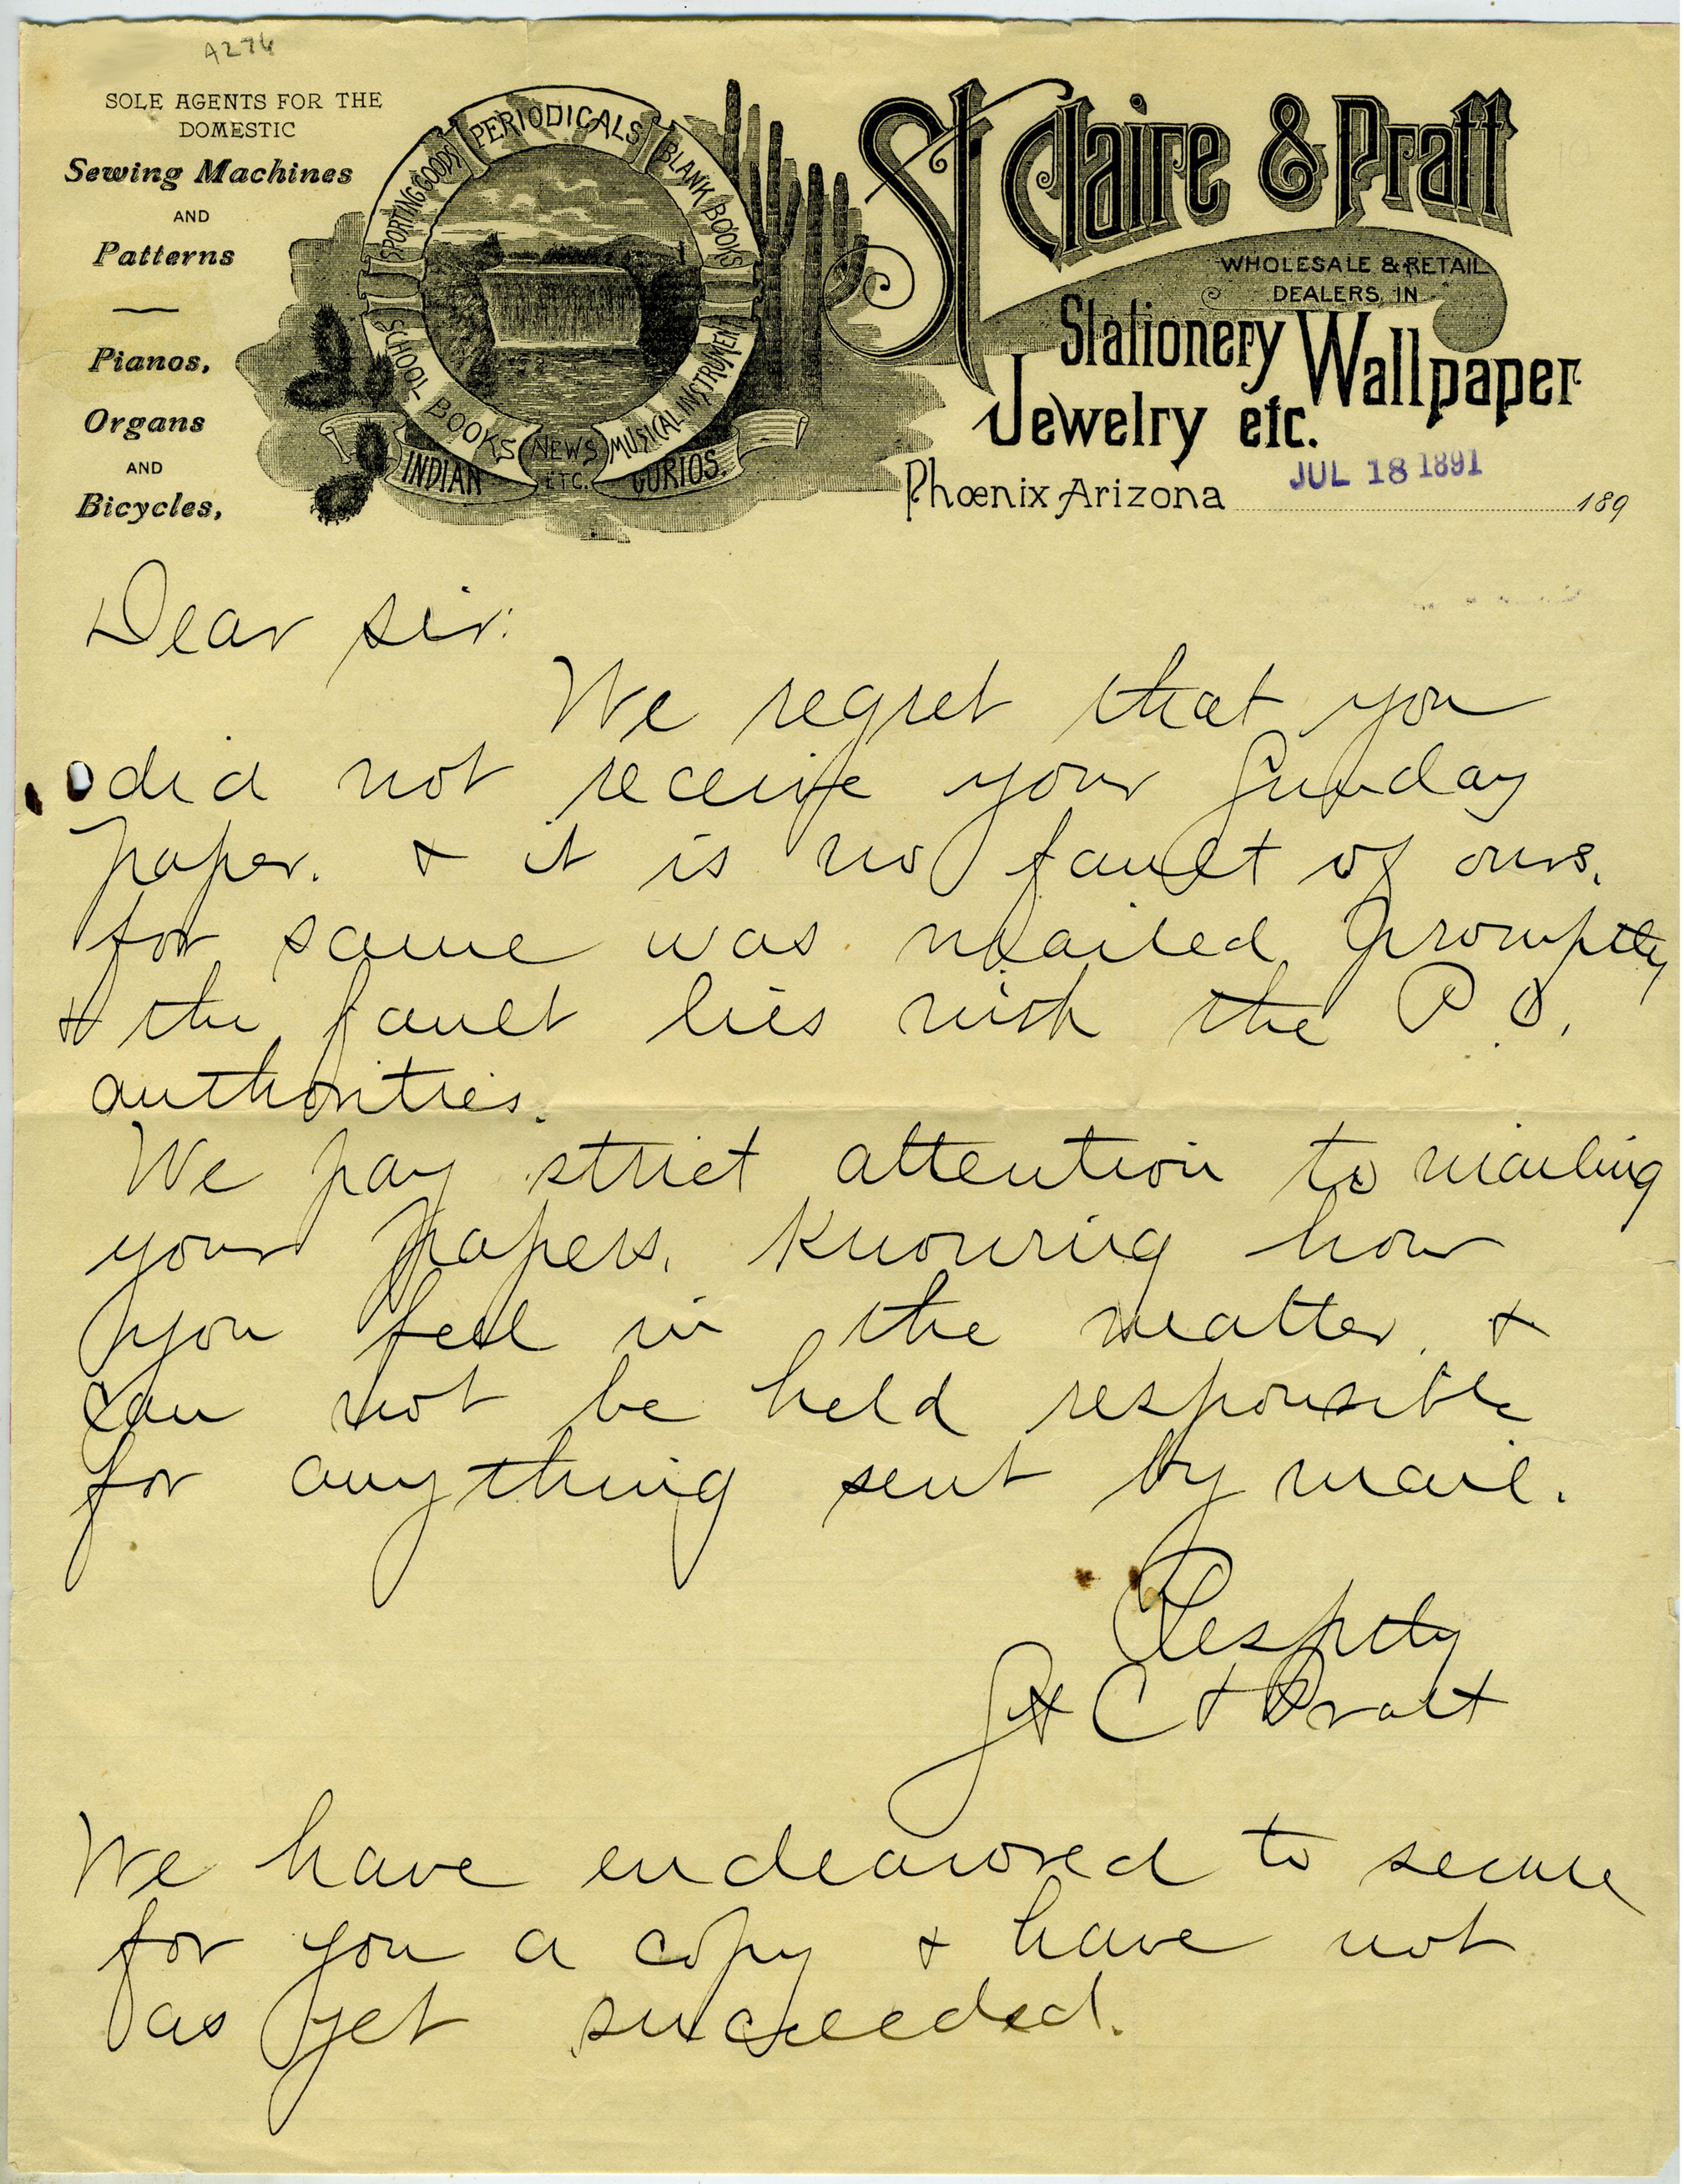 A276
SOLE AGENTS FOR THE
DOMESTIC
Sewing Machines
AND
Patterns
Pianos,
Organs
AND
Bicycles,
SPORTING GOODS
PERIODICALS
BLANK BOOKS
SCHOOL BOOKS
NEWS
ETC.
MUSICAL INSTRUMENT
INDIAN
CURIOS.
St Claire & Pratt
WHOLESALE & RETAIL
DEALERS IN
Stationery Wallpaper
Jewelry etc.
JUL 18 1891
Phœnix Arizona 189
Dear sir:
We regret that you
did not receive your Sunday
paper. & it is no fault of ours.
for same was mailed promptly
& the fault lies with the P. O.
authorities.
We pay strict attention to mailing
your papers. Knowing how
you feel in the matter. &
can not be held responsible
for anything sent by mail.
Resptly
St C & Pratt
We have endeavored to secure
for you a copy & have not
as yet succeeded.